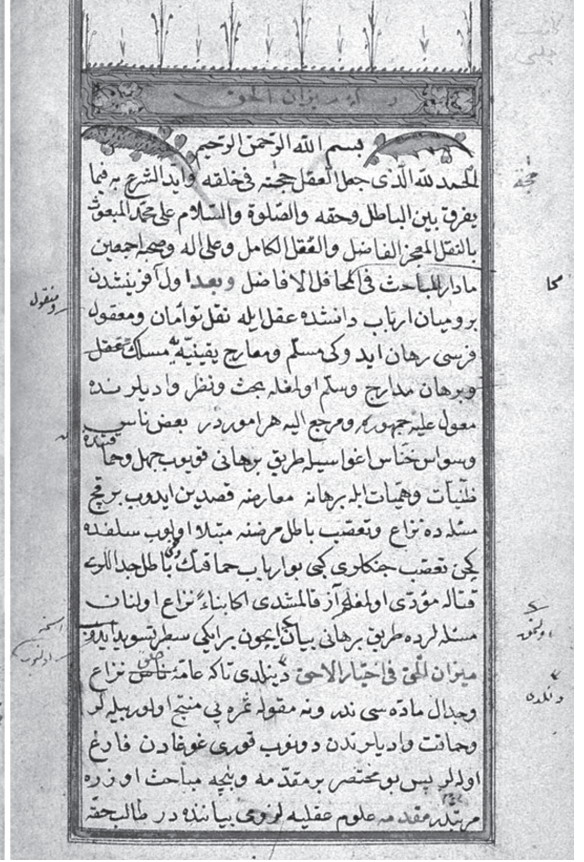 بسم الله الرحمن الرحيم
الحمد لله الذى جعل العقل حجته فى خلقه وايد الشرع به فيما
يفرق بين الباطل وحقه والصلوة والسلام على محمد المبعوث
بالنقل المعجز الفاضل والعقل الكامل وعلى اله وصحبه اجمعين
مادار المباحث فى المحافل الافاضل وبعد اول آفرينشدن
برو ميان ارباب دانشده عقل ايله نقل توأمان ومعقول
فرسى رهان ايدوكى مسلم ومعارج يقينيه يه مسلك عقل
وبرهان مدارج وسلم اولمغله بحث ونظر واديلرنده
معول عليه جمهور ومرجع اليه هر امور در بعض ناس
وسواس خناس اغواسيله طريق برهانى قويوب جهل وحما
ظنيات وهميات ايله برهانه معارضه قصدين ايدوب بر قچ
مسئله ده نزاع وتعصب باطل مرضنه مبتلا اولوب سلفده
كچن تعصب جنكلرى كبى بو ارباب حماقتك باطل جداللرى
قتاله مؤدى اولمغله آز قالمشدى اكا بناء نزاع اولنان
مسئله لرده طريق برهانى بيان ايچون بر ايكى سطر تسويد ايدوب
ميزان الحق فى اختيار الاحق ديلدى تاكه عامه ناس نزاع
وجدال ماده سى ندر ونه مقوله ثمره يى منتج اولور بيله لر
وحماقت واديلرندن دونوب قورى غوغادن فارغ
اوله لر پس بو مختصر بر مقدمه وبنچه مباحث اوزره
مرتبدر مقدمه علوم عقليه لزومى بياننده در طالب حقه
ومنقول
دنلدى